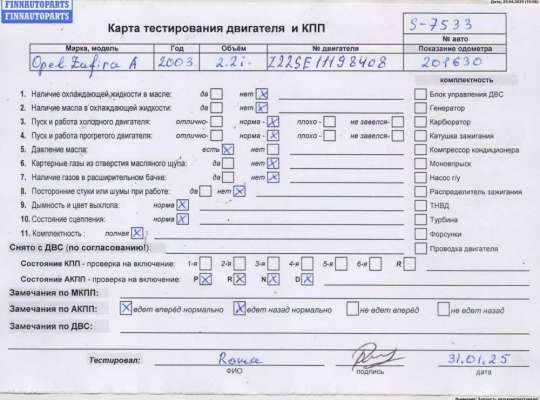 FINNAUTOPARTS
FINNAUTOPARTS
Карта тестирования двигателя и КПП
S-7533
№ авто
Марка, модель Год Объём № двигателя Показание одометра
Opel Zafira A 2003 2.2i- Z22SE11198408 201630
комплектность
1. Наличие охлаждающей жидкости в масле: да нет X Блок управления ДВС
2. Наличие масла в охлаждающей жидкости: да нет X Генератор
3. Пуск и работа холодного двигателя: отлично- норма - X плохо - не завелся- Карбюратор
4. Пуск и работа прогретого двигателя: отлично- норма - X плохо - не завелся- Катушка зажигания
5. Давление масла: есть X нет Компрессор кондиционера
6. Картерные газы из отверстия масляного щупа: да нет X Моновпрыск
7. Наличие газов в расширительном бачке: да нет X Насос г/у
8. Посторонние стуки или шумы при работе: да нет X Распределитель зажигания
9. Дымность и цвет выхлопа: норма X ТНВД
10. Состояние сцепления: норма X Турбина
11. Комплектность : полная X Форсунки
Снято с ДВС (по согласованию!): Проводка двигателя
Состояние КПП - проверка на включение: 1-я 2-я 3-я 4-я 5-я 6-я R
Состояние АКПП - проверка на включение: P X R X N X D X
Замечания по МКПП:
Замечания по АКПП: X едет вперёд нормально X едет назад нормально не едет вперёд не едет назад
Замечания по ДВС:
Тестировал: Рома 31.01.25
ФИО подпись дата